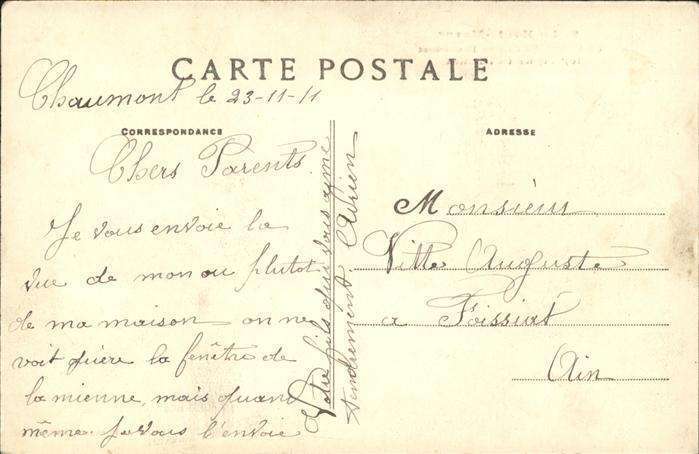 CARTE POSTALE
Chaumont le 23-11-11
CORRESPONDANCE
Chers Parents
Je vous envoie la
vue de mon ou plutot
de ma maison on ne
voit guère la fenêtre de
la mienne, mais quand
même je vous l'envoie
Votre fils qui vous aime
tendrement Adrien
ADRESSE
Monsieur
Ville Auguste
a Foissiat
Ain